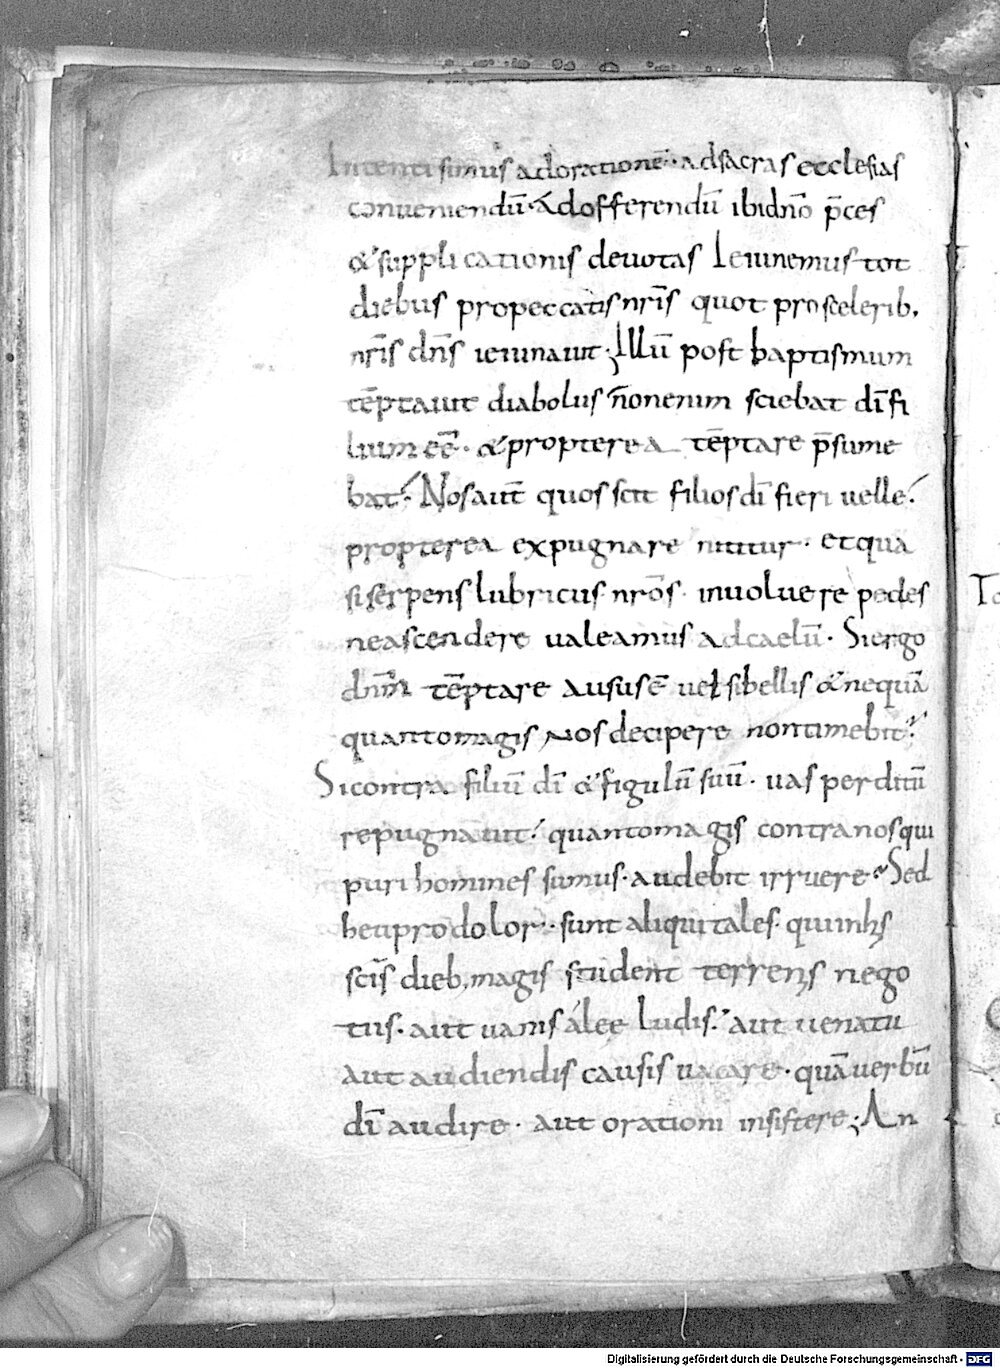 Intenti simus adorationē· adsacras ecclesias
conueniendū· Adofferendū ibidnō p̄ces
&suppli cationis deuotas Ieiunemus tot
diebus propeccatisnr̄is quot prosceleriƀ.
nr̄is dn̄s ieiunauit; Illū post baptismum
tēptauit diabolus n̄onenim sciebat dī fi
lium eē· &propterea tēptare p̄sume
bat? Nosaut̄ quosscit filiosdī fieri uelle?
propterea expugnare nititur· etqua
siserpens lubricus nr̄os inuoluere pedes
neascendere ualeamus adcaelū· Siergo
dn̄m tēptare aususē uel sibellis &nequā
quantomagis nosdecipere nontimebit?
Sicontra filiū dī &figulū suū· uas perditū
repugnauit? quantomagis contranosqui
puri homines sumus· audebit irruere? Sed
heuprodolor· sunt aliquitales· quiinhis
sc̄is dieƀ. magis student terrenis nego
tiis· aut uanis alee ludis? aut uenatu
aut audiendis causis uacare· quā uerbū
dī audire· aut orationi insistere; An
Digitalisierung gefördert durch die Deutsche Forschungsgemeinschaft - DFG